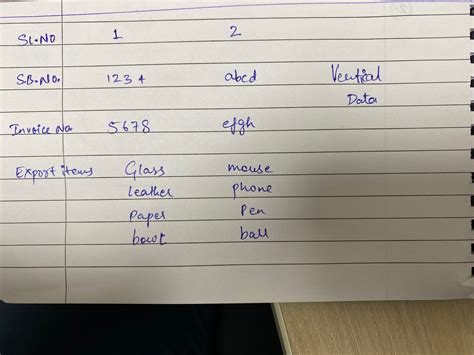 Sl.NO 1 2
SB.NO. 1234 abcd Vertical
Data
Invoice No 5678 efgh
Export items Glass mouse
leather phone
Paper Pen
ball